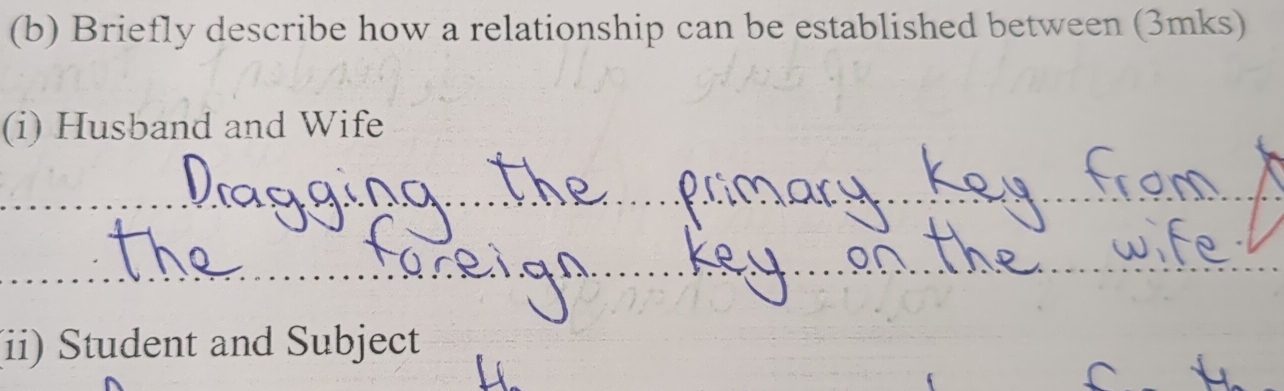 (b) Briefly describe how a relationship can be established between (3mks)
(i) Husband and Wife
Dragging the primary key from
the foreign key on the wife.
ii) Student and Subject